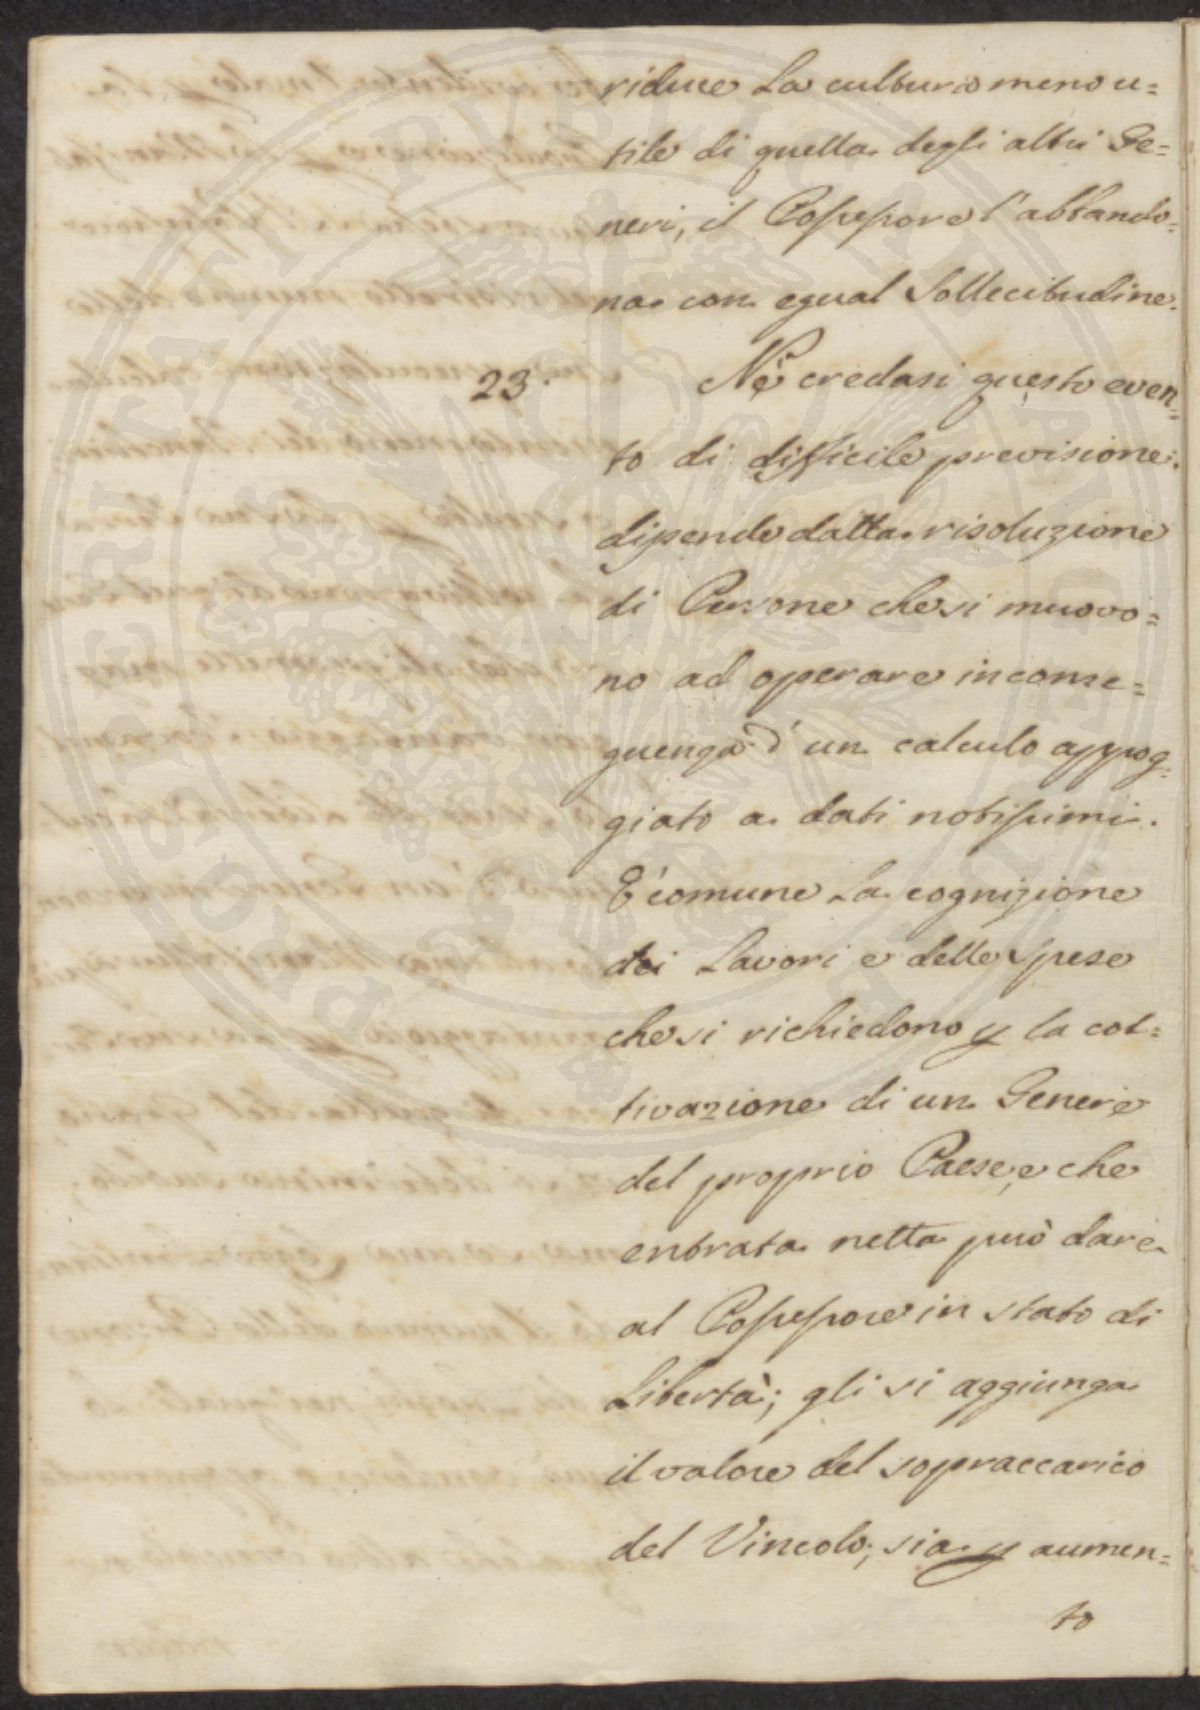 riduce La cultura meno u=
tile di quella degli altri Ge=
neri, il Possessore l'abbando=
na con egual Sollecitudine.
23. Nè credasi questo even=
to di difficile previsione:
dipende dalla risoluzione
di Persone che si muovo=
no ad operare in conse=
guenza d'un calculo appog=
giato a dati notissimi.
E' comune La cognizione
dei Lavori e delle Spese
che si richiedono p la col=
tivazione di un Genere
del proprio Paese, e che
entrata netta può dare
al Possessore in stato di
Libertà; gli si aggiunga
il valore del sopraccarico
del Vincolo; sia p aumen=
to
PROSPERITATI PVBLICAE AVGENDAE